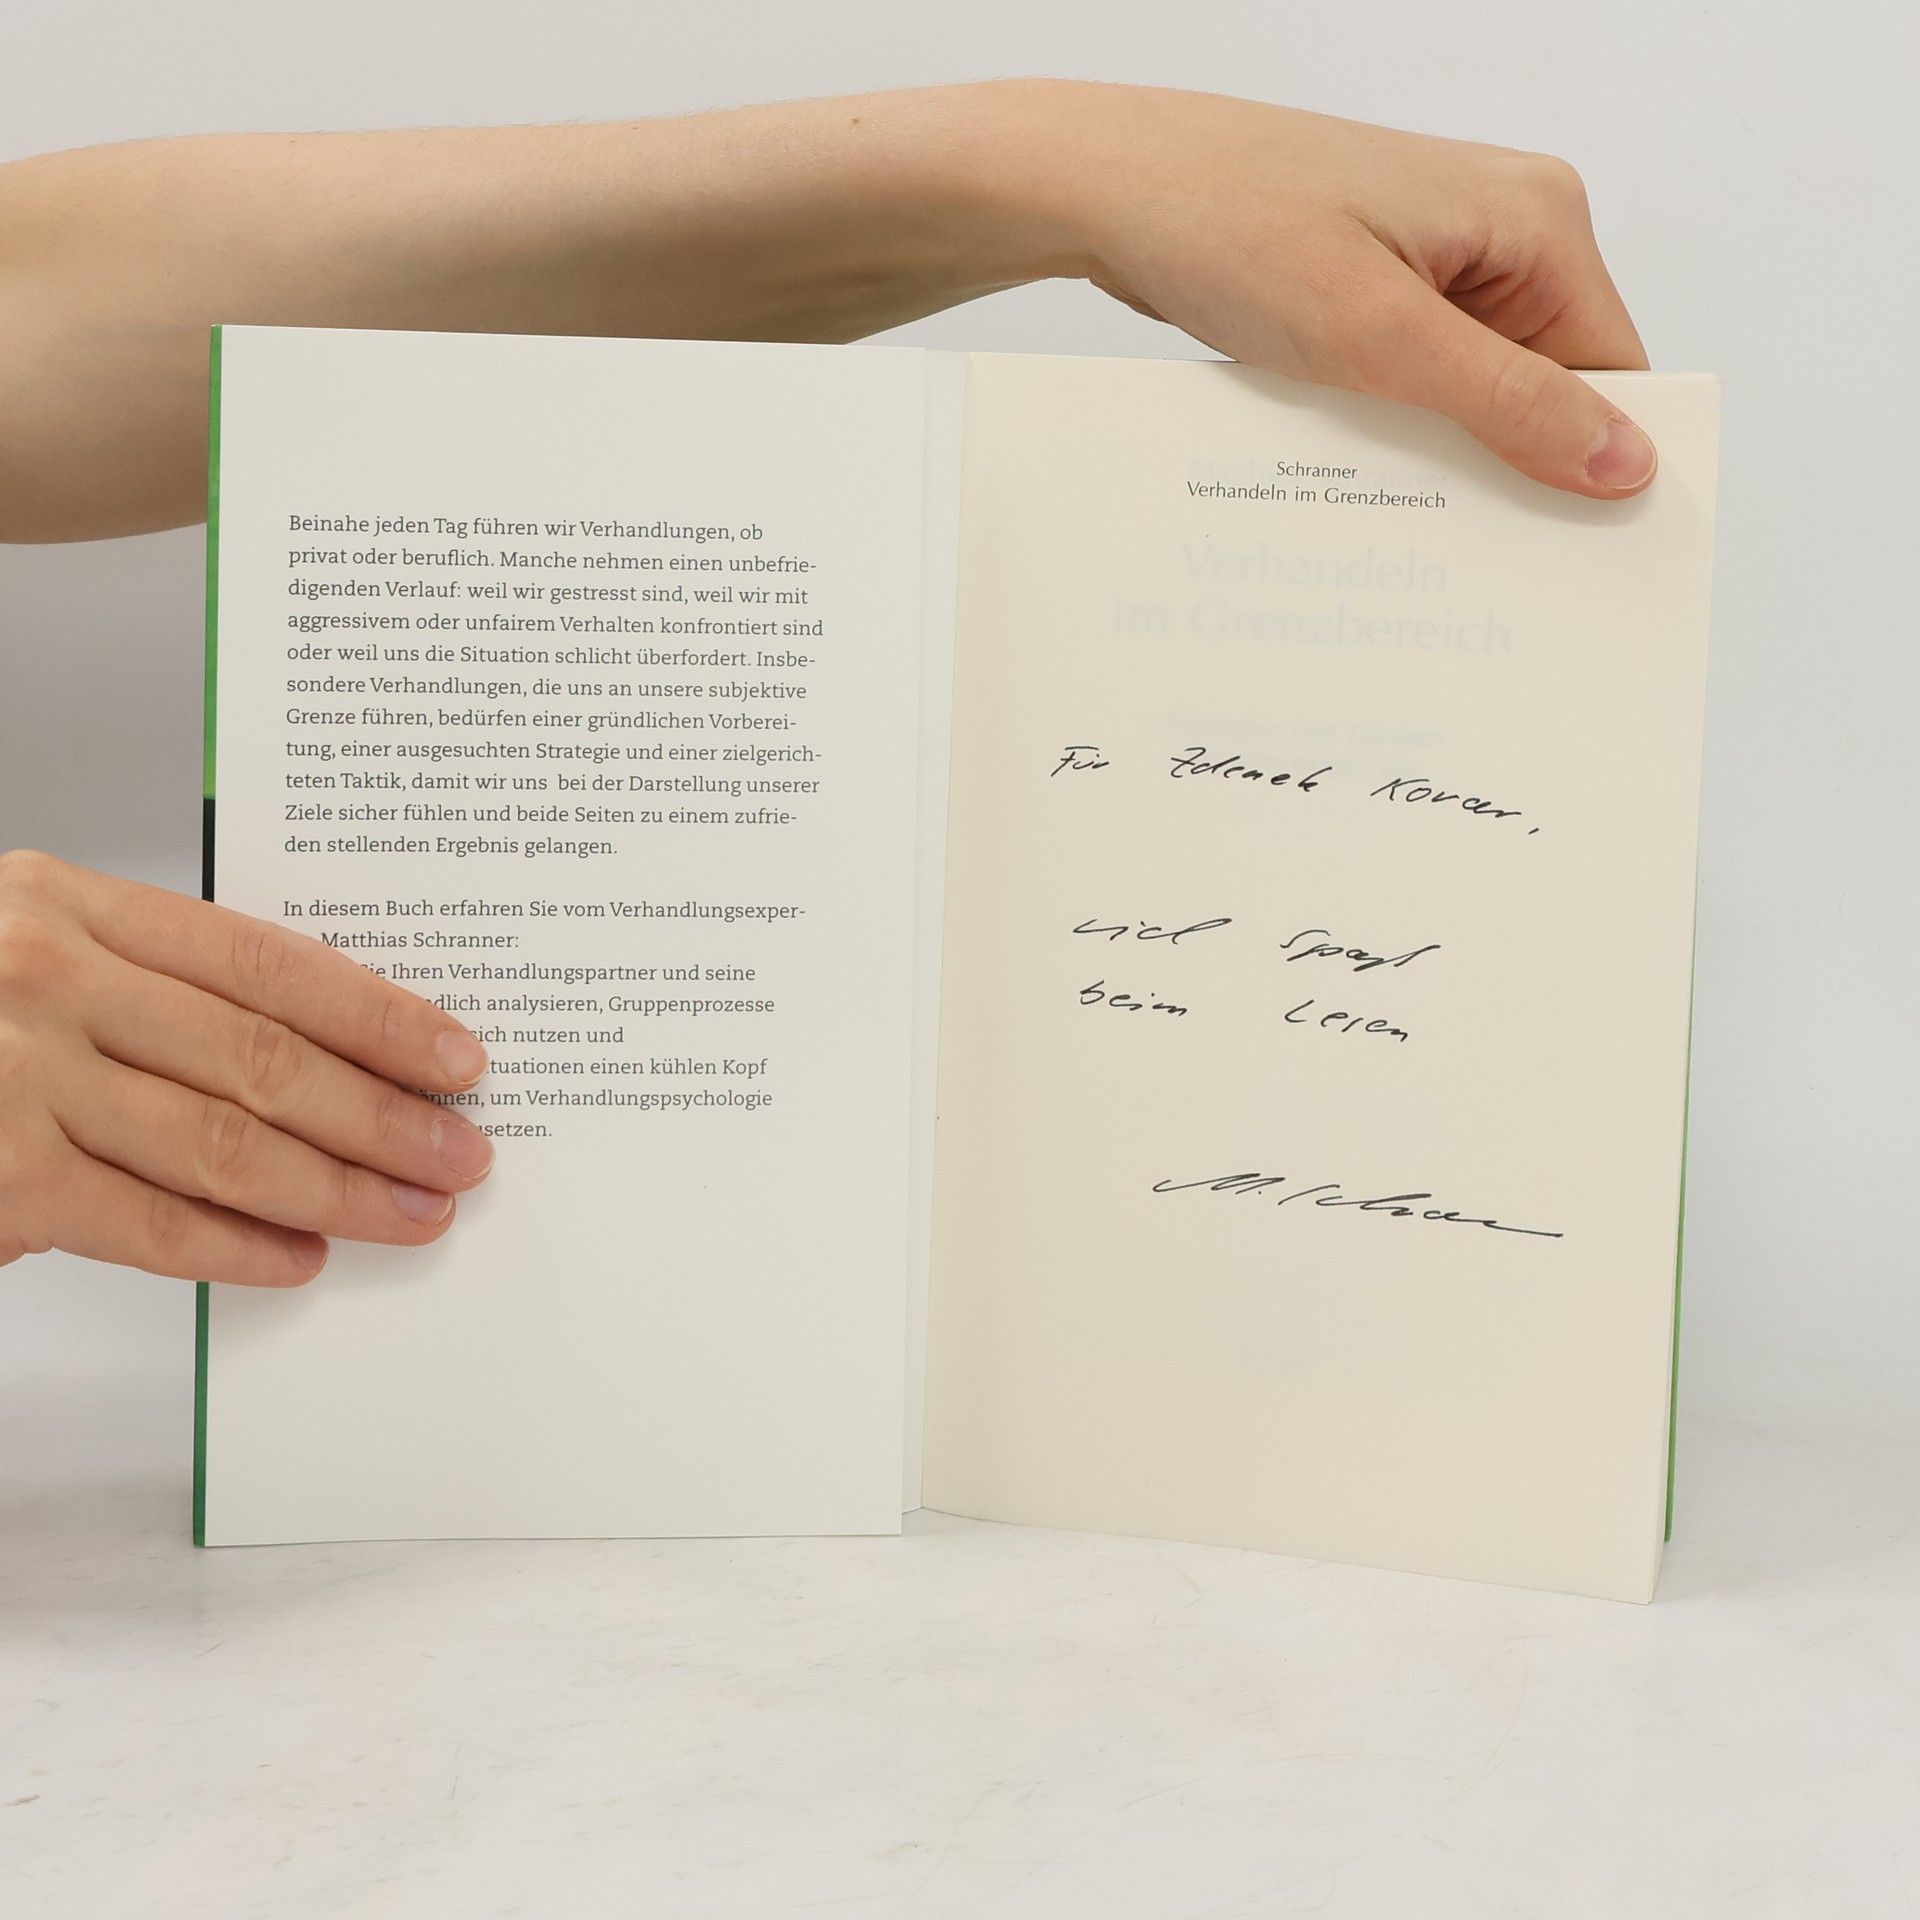 Beinahe jeden Tag führen wir Verhandlungen, ob
privat oder beruflich. Manche nehmen einen unbefrie-
digenden Verlauf: weil wir gestresst sind, weil wir mit
aggressivem oder unfairem Verhalten konfrontiert sind
oder weil uns die Situation schlicht überfordert. Insbe-
sondere Verhandlungen, die uns an unsere subjektive
Grenze führen, bedürfen einer gründlichen Vorberei-
tung, einer ausgesuchten Strategie und einer zielgerich-
teten Taktik, damit wir uns bei der Darstellung unserer
Ziele sicher fühlen und beide Seiten zu einem zufrie-
den stellenden Ergebnis gelangen.
In diesem Buch erfahren Sie vom Verhandlungsexper-
Matthias Schranner:
Sie Ihren Verhandlungspartner und seine
dlich analysieren, Gruppenprozesse
sich nutzen und
tuationen einen kühlen Kopf
önnen, um Verhandlungspsychologie
setzen.
Schranner
Verhandeln im Grenzbereich
Verhandeln
im Grenzbereich
Für Zdenek Kovar,
viel Spaß
beim Lesen
M. Schranner